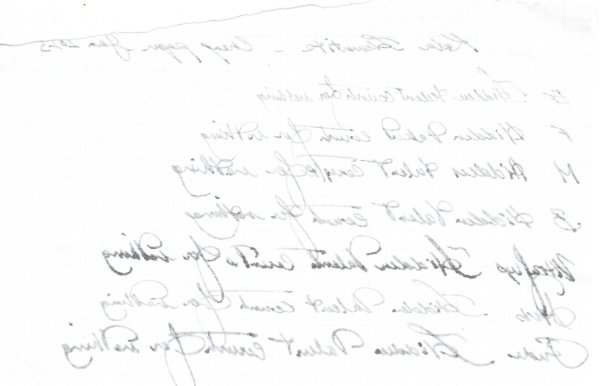 cheap paper Jan
EF Hidden talent counts for nothing
F Hidden Talent counts for nothing
M Hidden Talent counts for nothing
B Hidden Talent counts for nothing
Hidden Talent counts for nothing
Hidden Talent counts for nothing
Fude Hidden Talent counts for nothing